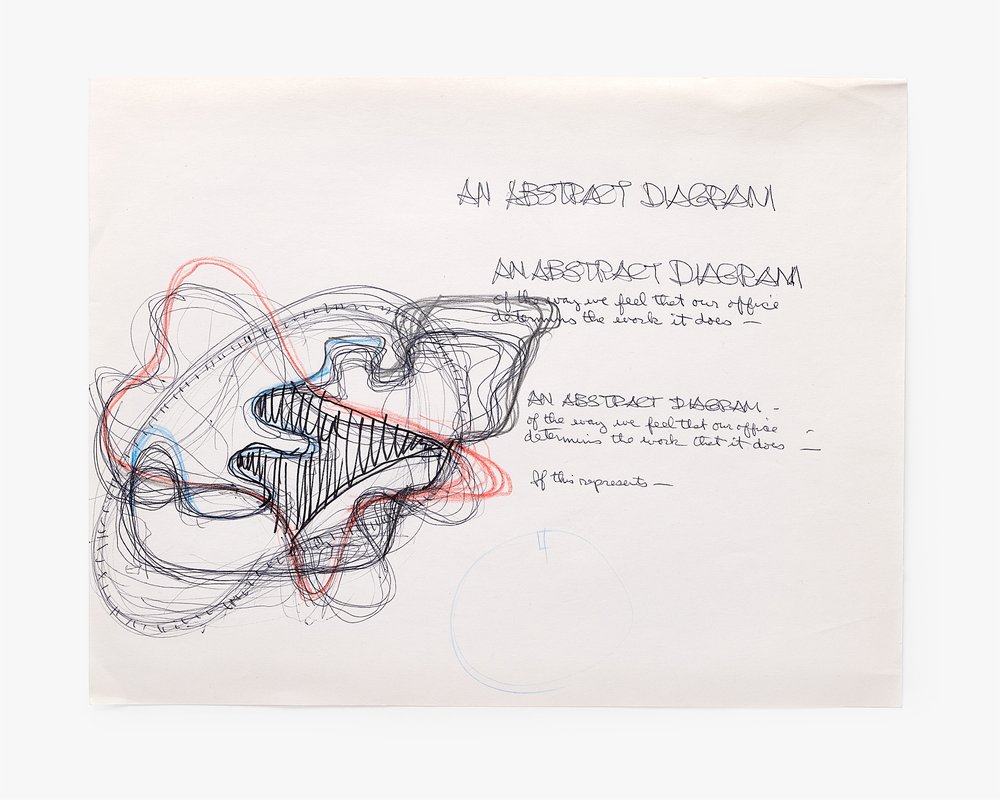 AN ABSTRACT DIAGRAM
AN ABSTRACT DIAGRAM
of the way we feel that our office
determins the work it does —
AN ABSTRACT DIAGRAM -
of the way we feel that our office -
determins the work that it does —
If this represents —